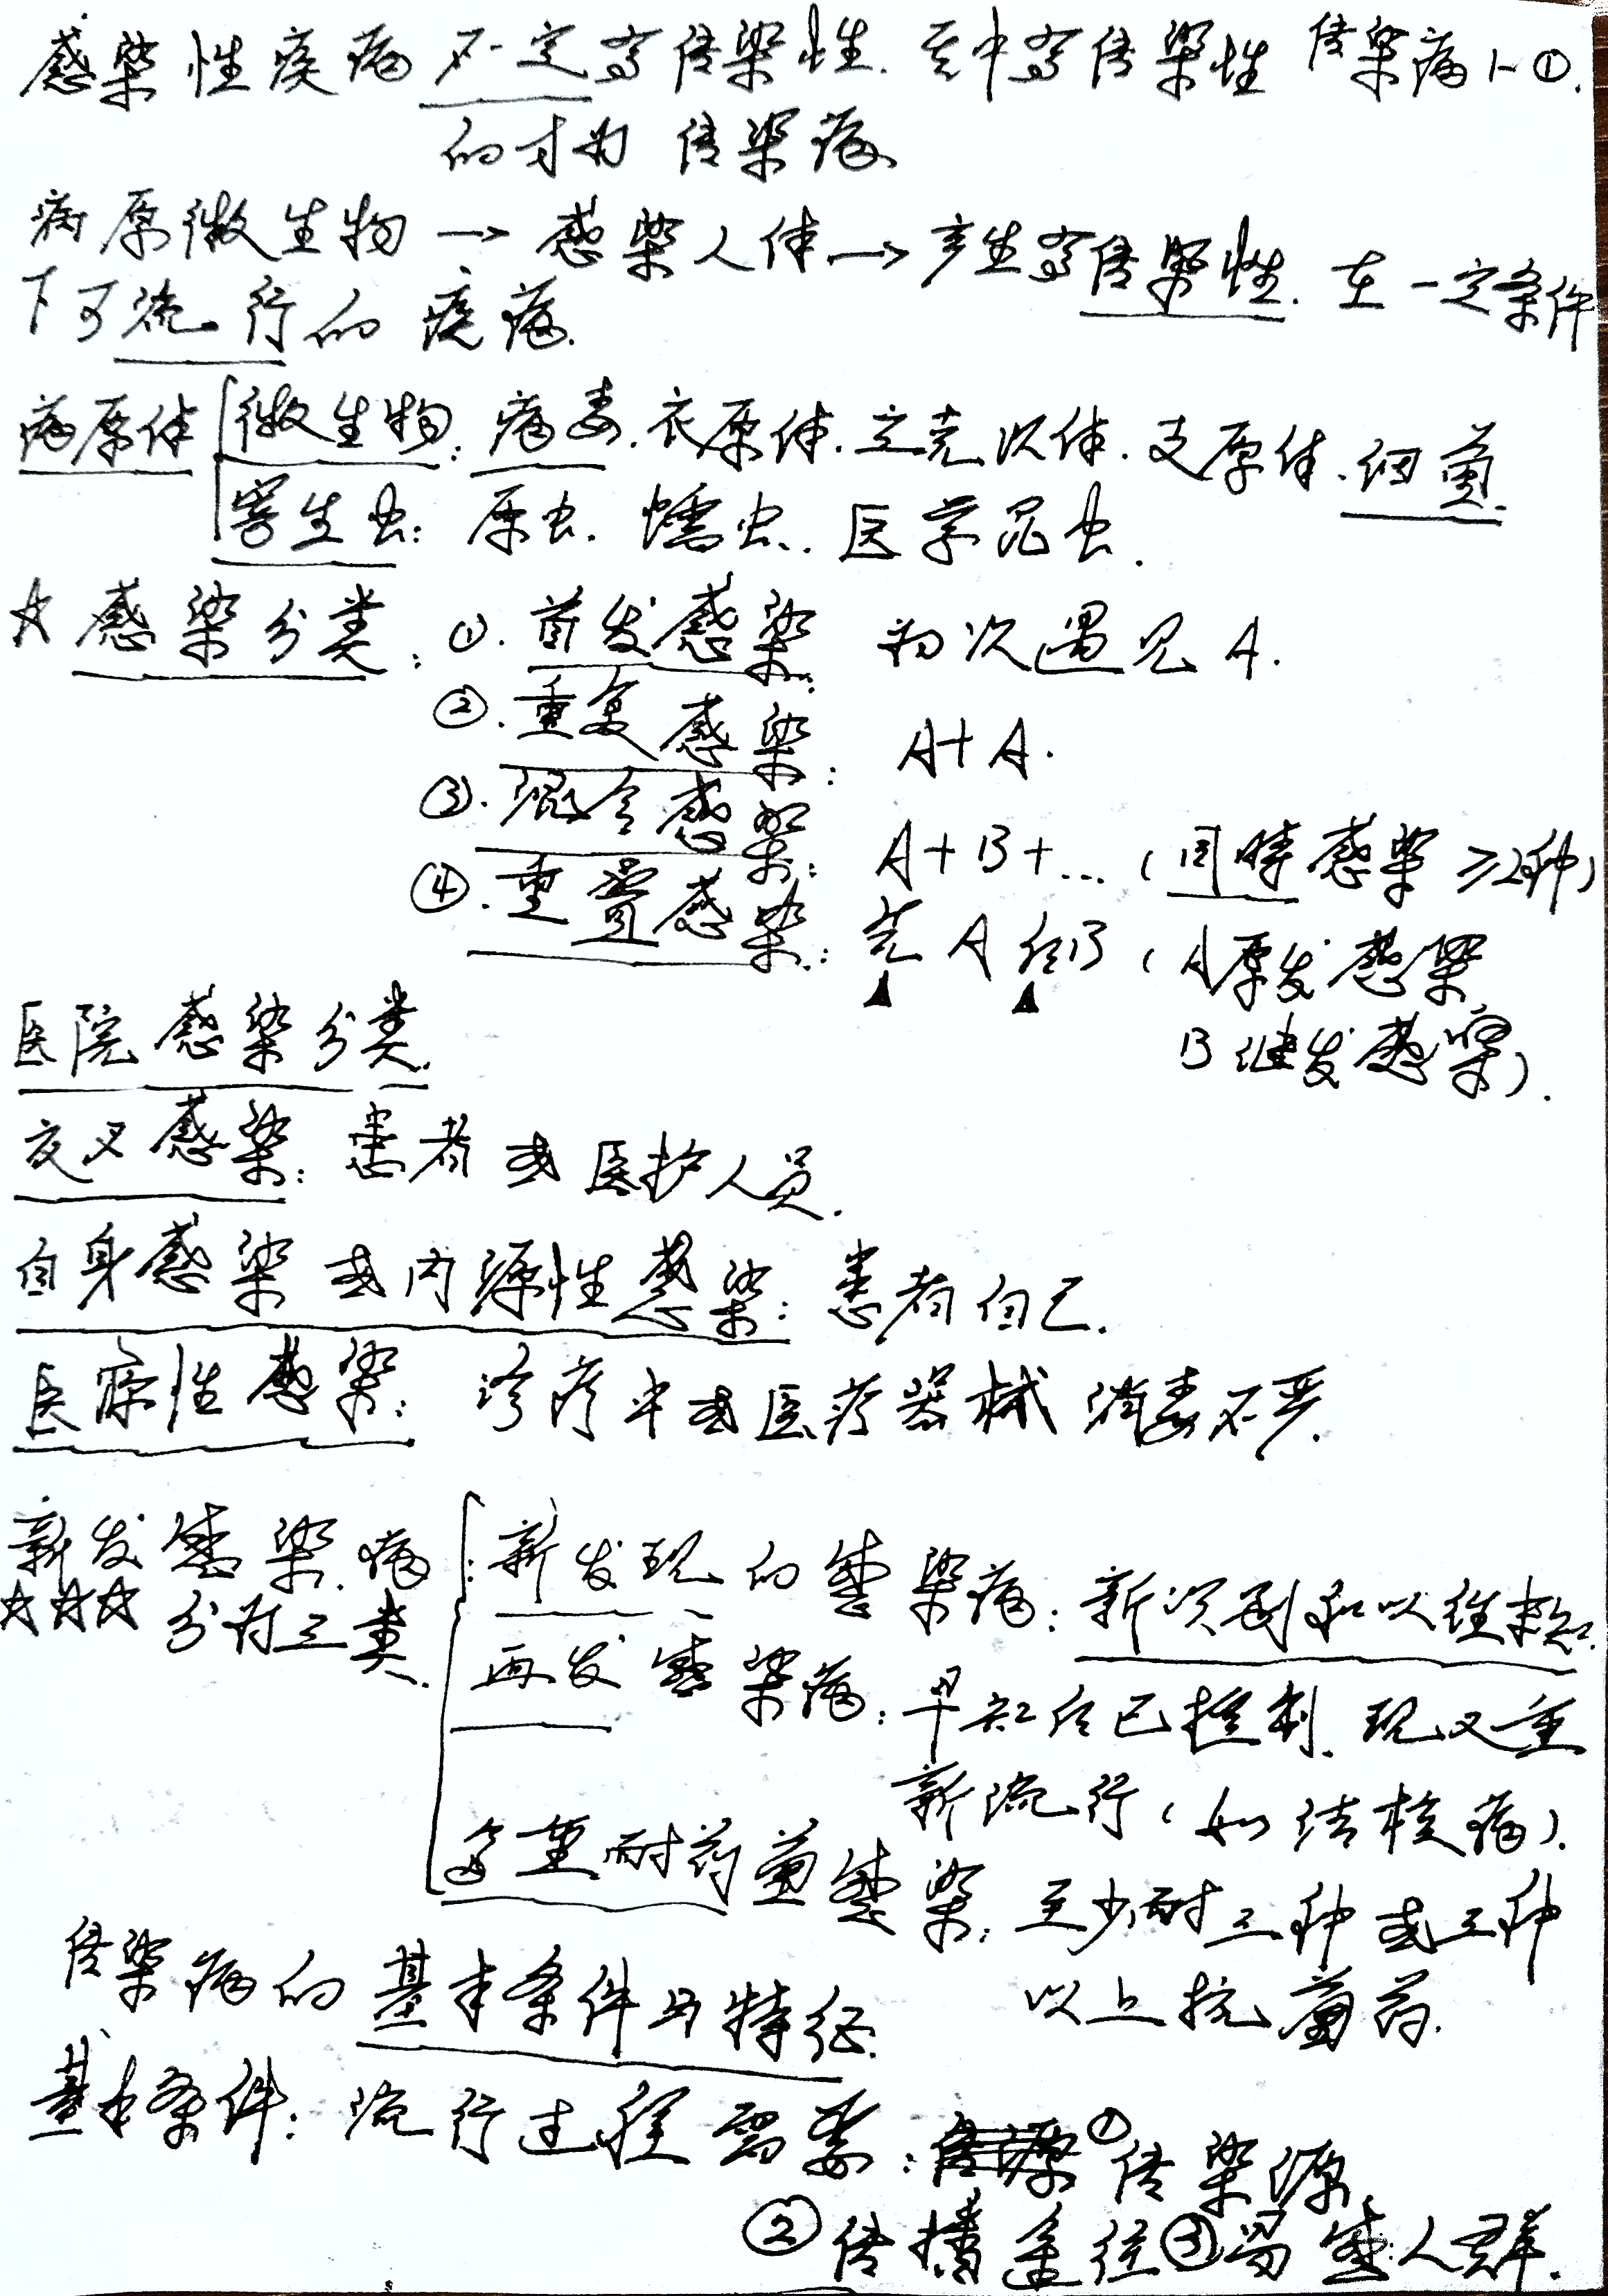 感染性疾病不一定有传染性.其中有传染性 传染病1-①.
的才为 传染病.
病原微生物→感染人体→产生有传染性.在一定条件
下可流行的疾病.
病原体 微生物:病毒.衣原体.立克次体.支原体.细菌.
寄生虫:原虫.蠕虫.医学昆虫.
☆感染分类:①.首发感染: 初次遇见A.
②.重复感染: A+A.
③.混合感染: A+B+...(同时感染≥2种)
④.重叠感染:先A后B(A原发感染,
B继发感染).
医院感染分类.
交叉感染:患者或医护人员.
自身感染或内源性感染:患者自己.
医源性感染: 诊疗中或医疗器械消毒不严.
新发感染病:新发现的感染病:新识别和以往未知.
☆☆☆分为三类.
再发感染病:早知后已控制.现又重
新流行(如结核病).
多重耐药菌感染:至少耐三种或三种
以上抗菌药.
传染病的基本条件与特征.
基本条件:流行过程需要:①传染源
②传播途径③易感人群.